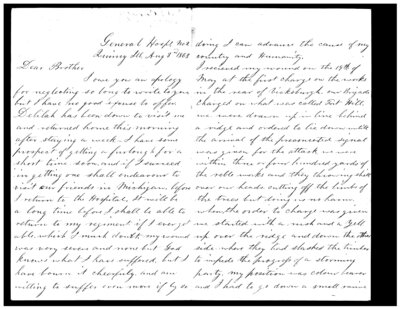 General Hosptl No 2
Quincy Ill. Aug 3rd 1863
Dear Brother
I owe you an apology
for neglecting so long to write to you
but I have no good excuse to offer
Delilah has been down to visit me
and returned home this morning
after staying a week. I have some
prospect of getting a furlough for a
short time soon and if I succeed
in getting one shall endeavour to
visit our friends in Michigan before
I return to the Hospital. It will be
a long time before I shall be able to
return to my regiment if I ever get
able which I much doubt, my wound
was very severe and none but God
knows what I have suffered, but I
have borne it cheerfully and am
willing to suffer even more if by so
doing I can advance the cause of my
country and Humanity.
I received my wound on the 19th of
May at the first charge on the works
in the rear of Vicksburgh our Brigade
charged on what was called Fort Hill
we were drawn up in line behind
a ridge and ordered to lie down until
the moment of the preconcerted signal
was given for the attack we were
within three or four hundred yards of
the rebble works and they throwing shell
over our heads cutting off the limbs of
the trees but doing us no harm.
when the order to charge was given
we started with a rush and a yell
up over the ridge and down the other
side where they had slashed the timber
to impede the progress of a storming
party, my position was colour bearer
and I had to go down a small ravine